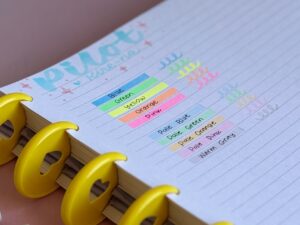 Pilot
Blue
Green
Yellow
Orange
Pink
Pale Blue
Pale Green
Pale Orange
Pale Pink
Warm Grey